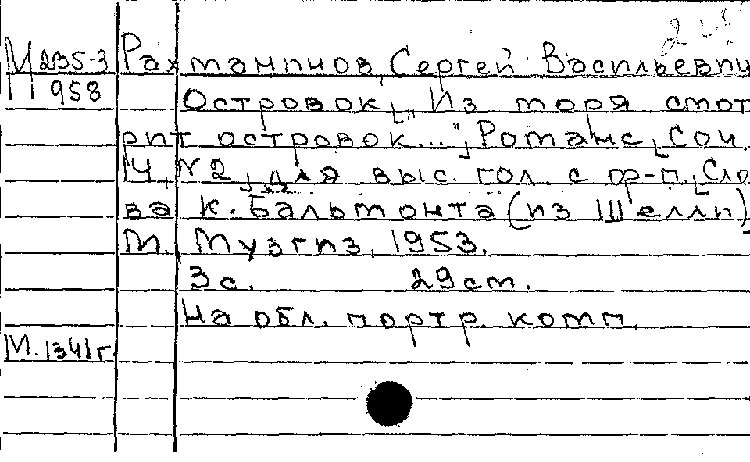 М 235-3 Рахманинов, Сергей Васильевич
958 Островок, "Из моря смот
рит островок...", Романс, Соч.
14, №2, для выс. гол. с ф-п., Сло
ва К. Бальмонта (из Шелли),
М., Музгиз, 1953.
3 с. 29 см.
На обл. портр. комп.
М. 1341г